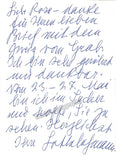 Liebe Rose - danke
für Ihren lieben
Brief mit dem
Gruss vom Grab.
Ich bin sehr gerührt
und dankbar.
Vom 23. - 27. Mai
bin ich in
und hoffe, Sie zu
sehen. Herzlichst
Ihre